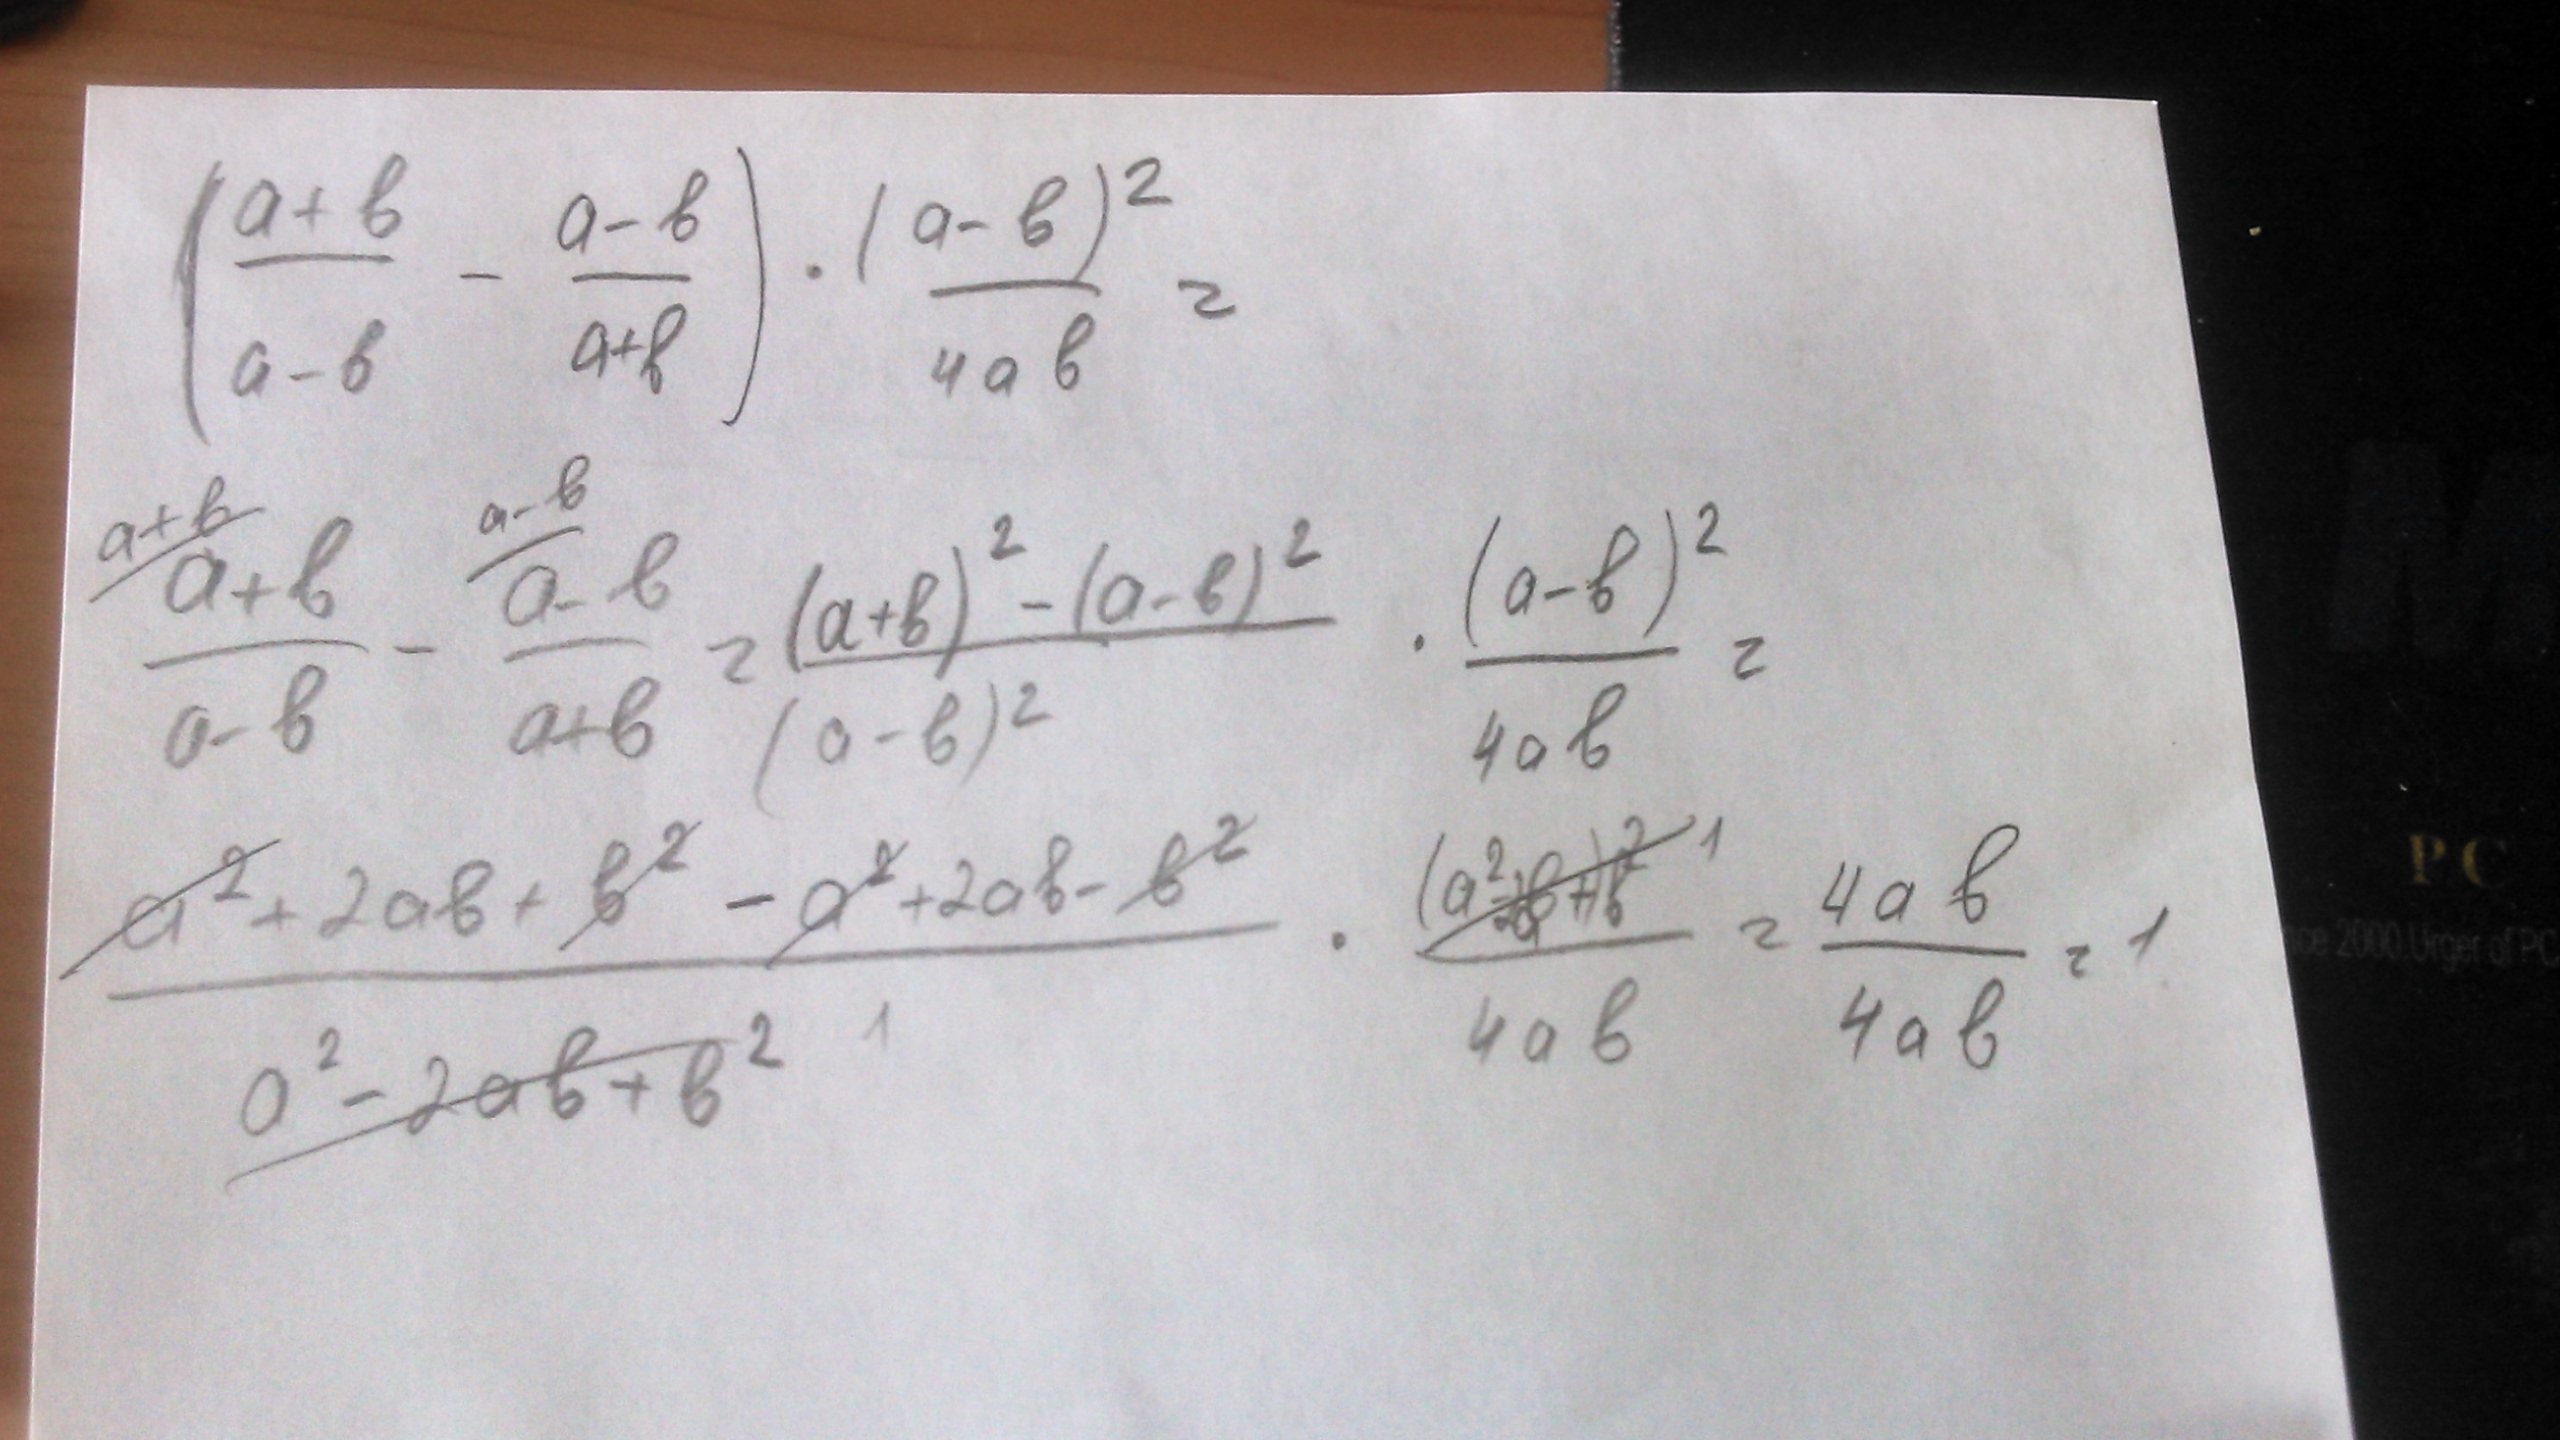 (a+b/a-b - a-b/a+b) · (a-b)²/4ab =
a+b/ a+b/a-b - a-b/ a-b/a+b = (a+b)² - (a-b)²/(a-b)² · (a-b)²/4ab =
a² + 2ab + b² - a² + 2ab - b²/a² - 2ab + b² 1 · 1/4ab = 4ab/4ab = 1
PC
2000.Urger of PC